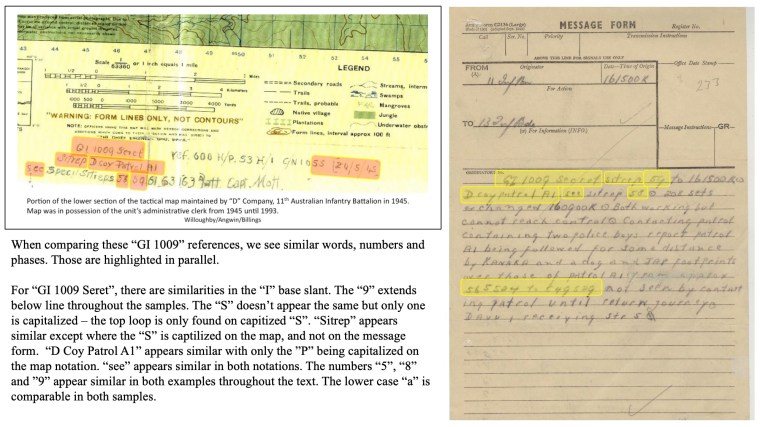 43
44
45
46
47
48
49
50
51
52
53
54
55
Scale 1/63360 or 1 inch equals 1 mile
LEGEND
Secondary roads
Trails
Trails, probable
Native village
Railroad
Plantations
Form lines, interval approx 100 ft
Streams,
Swamps
Mangroves
Jungle
Underwater
"WARNING: FORM LINES ONLY, NOT CONTOURS"
GI 1009 Seret
Sitrep D Coy Patrol A1
see Specl Sitreps 58 59, 61, 63
Capt. Mott.
Portion of the lower section of the tactical map maintained by "D" Company, 11th Australian Infantry Battalion in 1945.
Map was in possession of the unit's administrative clerk from 1945 until 1993.
Willoughby/Angwin/Billings
When comparing these "GI 1009" references, we see similar words, numbers and
phases. Those are highlighted in parallel.
For "GI 1009 Seret", there are similarities in the "I" base slant. The "9" extends
below line throughout the samples. The "S" doesn't appear the same but only one
is capitalized – the top loop is only found on capitized "S". "Sitrep" appears
similar except where the "S" is captilized on the map, and not on the message
form. "D Coy Patrol A1" appears similar with only the "P" being capitalized on
the map notation. "see" appears similar in both notations. The numbers "5", "8"
and "9" appear similar in both examples throughout the text. The lower case "a" is
comparable in both samples.
MESSAGE FORM
Register No.
Call
Ser. No.
Priority
Transmission Instructions
ABOVE THIS LINE FOR SIGNALS USE ONLY
FROM
(A)
Originator
Date-Time of Origin
Office Date Stamp
11 Inf Bn
161500K
233
For Action
TO
(W) For Information (INFO)
Message Instructions
GR
GI 1009 Secret sitrep 59 to 161500K
D coy patrol A1 see sitrep 58 208 sets
exchanged 160900K Both working but
cannot reach control Contacting patrol
containing two police boys report patrol
A1 being followed for some distance
by KANAKA and a dog and JAP footprints
over those of patrol A1 from approx
565504 to not seen by contact
ing patrol until return journey